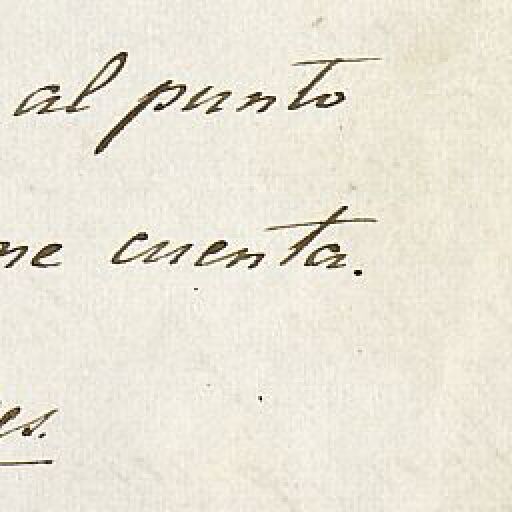 al punto
me cuenta.
es.